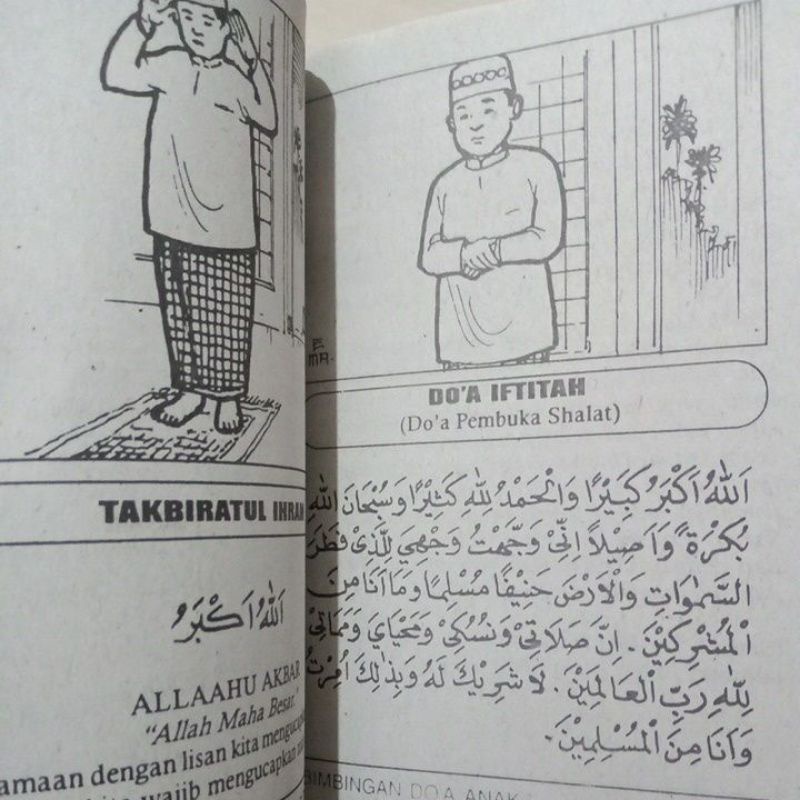 TAKBIRATUL IHRAM
اَللهُ اَكْبَرُ
ALLAAHU AKBAR
"Allah Maha Besar."
amaan dengan lisan kita mengucapkan
wajib mengucapkan
E
MA.
DO'A IFTITAH
(Do'a Pembuka Shalat)
اَللهُ اَكْبَرُ كَبِيْرًا وَالْحَمْدُ لِلّٰهِ كَثِيْرًا وَسُبْحَانَ اللّٰهِ
بُكْرَةً وَاَصِيْلاً اِنِّيْ وَجَّهْتُ وَجْهِيَ لِلَّذِيْ فَطَرَ
السَّمٰوَاتِ وَالْاَرْضَ حَنِيْفًا مُسْلِمًا وَمَا اَنَا مِنَ
الْمُشْرِكِيْنَ. اِنَّ صَلَاتِيْ وَنُسُكِيْ وَمَحْيَايَ وَمَمَاتِيْ
لِلّٰهِ رَبِّ الْعَالَمِيْنَ. لَا شَرِيْكَ لَهُ وَبِذٰلِكَ اُمِرْتُ
وَاَنَا مِنَ الْمُسْلِمِيْنَ.
BIMBINGAN DO'A ANAK